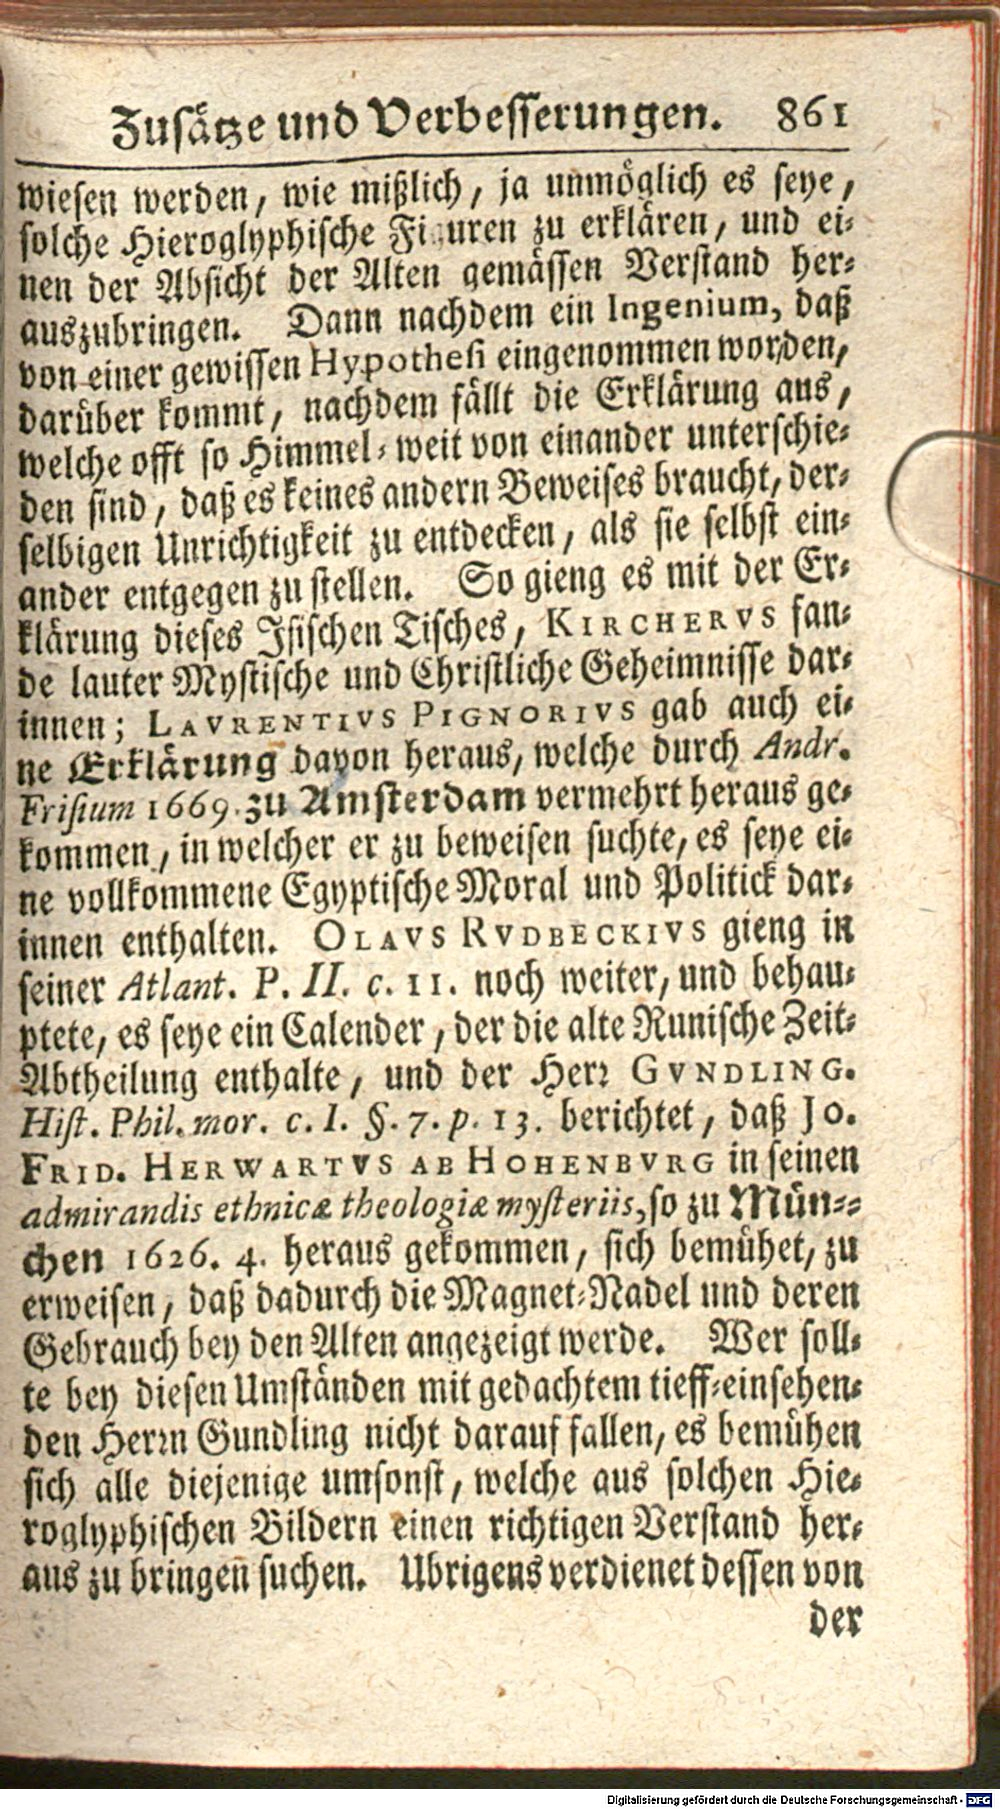 Zusätze und Verbesserungen. 861
wiesen werden, wie mißlich, ja unmöglich es seye,
solche Hieroglyphische Figuren zu erklären, und ei-
nen der Absicht der Alten gemässen Verstand her-
auszubringen. Dann nachdem ein Ingenium, daß
von einer gewissen Hypothesi eingenommen worden,
darüber kommt, nachdem fällt die Erklärung aus,
welche offt so Himmel-weit von einander unterschie-
den sind, daß es keines andern Beweises braucht, der-
selbigen Unrichtigkeit zu entdecken, als sie selbst ein-
ander entgegen zu stellen. So gieng es mit der Er-
klärung dieses Isischen Tisches, KIRCHERVS fan-
de lauter Mystische und Christliche Geheimnisse dar-
innen; LAVRENTIVS PIGNORIVS gab auch ei-
ne Erklärung davon heraus, welche durch Andr.
Frisium 1669. zu Amsterdam vermehrt heraus ge-
kommen, in welcher er zu beweisen suchte, es seye ei-
ne vollkommene Egyptische Moral und Politick dar-
innen enthalten. OLAVS RVDBECKIVS gieng in
seiner Atlant. P. II. c. 11. noch weiter, und behau-
ptete, es seye ein Calender, der die alte Runische Zeit-
Abtheilung enthalte, und der Herr GVNDLING.
Hist. Phil. mor. c. I. §. 7. p. 13. berichtet, daß JO.
FRID. HERWARTVS AB HOHENBVRG in seinen
admirandis ethnicæ theologiæ mysteriis, so zu Mün-
chen 1626. 4. heraus gekommen, sich bemühet, zu
erweisen, daß dadurch die Magnet-Nadel und deren
Gebrauch bey den Alten angezeigt werde. Wer soll-
te bey diesen Umständen mit gedachtem tieff-einsehen-
den Herrn Gundling nicht darauf fallen, es bemühen
sich alle diejenige umsonst, welche aus solchen Hie-
roglyphischen Bildern einen richtigen Verstand her-
aus zu bringen suchen. Ubrigens verdienet dessen von
der
Digitalisierung gefördert durch die Deutsche Forschungsgemeinschaft - DFG